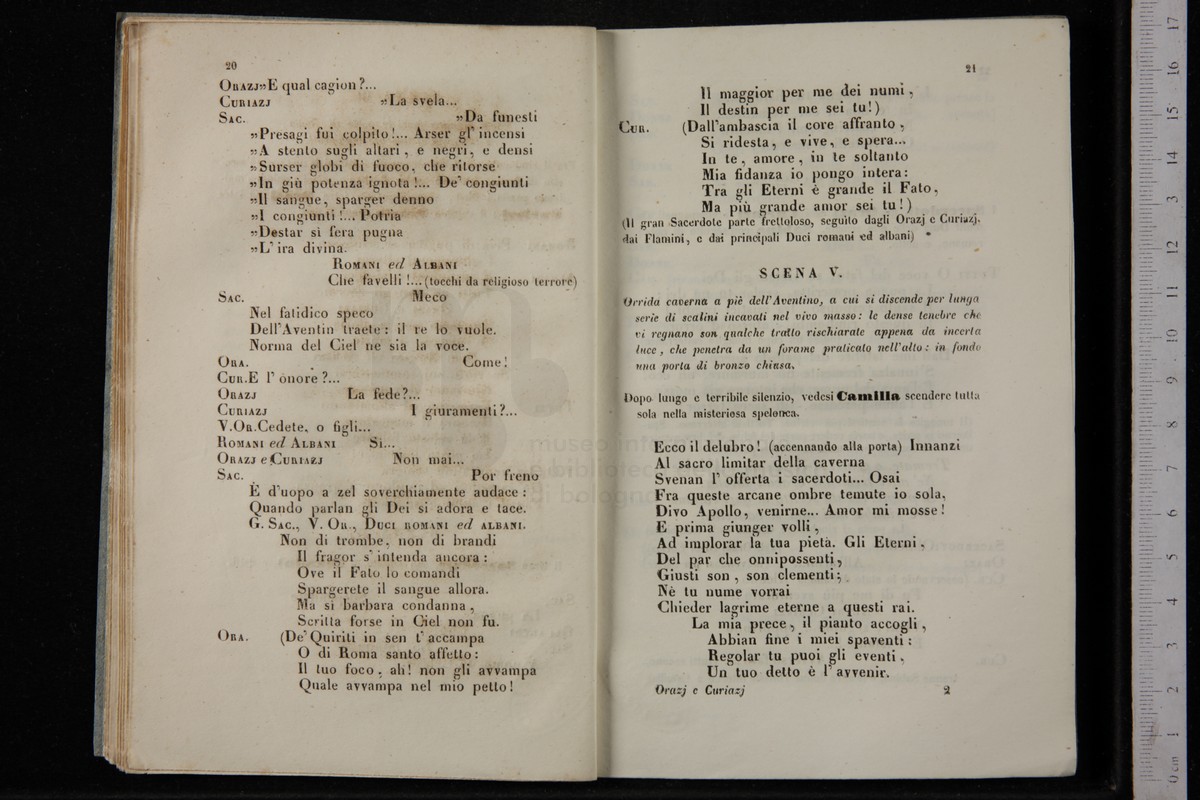 20
Orazj »E qual cagion?...
Curiazj »La svela...
Sac. »Da funesti
»Presagi fui colpito!... Arser gl' incensi
»A stento sugli altari, e negri, e densi
»Surser globi di fuoco, che ritorse
»In giù potenza ignota!... De' congiunti
»Il sangue, sparger denno
»I congiunti!... Potria
»Destar sì fera pugna
»L' ira divina.
Romani ed Albani
Che favelli!...(tocchi da religioso terrore)
Sac. Meco
Nel fatidico speco
Dell'Aventin traete: il re lo vuole.
Norma del Ciel ne sia la voce.
Ora. Come!
Cur. E l' onore?...
Orazj La fede?...
Curiazj I giuramenti?...
V.Or. Cedete, o figli...
Romani ed Albani Sì...
Orazj e Curiazj Non mai...
Sac. Por freno
È d'uopo a zel soverchiamente audace:
Quando parlan gli Dei si adora e tace.
G. Sac., V. Or., Duci romani ed albani.
Non di trombe, non di brandi
Il fragor s' intenda ancora:
Ove il Fato lo comandi
Spargerete il sangue allora.
Ma sì barbara condanna,
Scritta forse in Ciel non fu.
Ora. (De' Quiriti in sen t' accampa
O di Roma santo affetto:
Il tuo foco, ah! non gli avvampa
Quale avvampa nel mio petto!
21
Il maggior per me dei numi,
Il destin per me sei tu!)
Cur. (Dall'ambascia il core affranto,
Si ridesta, e vive, e spera...
In te, amore, in te soltanto
Mia fidanza io pongo intera:
Tra gli Eterni è grande il Fato,
Ma più grande amor sei tu!)
(Il gran Sacerdote parte frettoloso, seguito dagli Orazj e Curiazj,
dai Flamini, e dai principali Duci romani ed albani) *
SCENA V.
Orrida caverna a piè dell'Aventino, a cui si discende per lunga
serie di scalini incavati nel vivo masso: le dense tenebre che
vi regnano son qualche tratto rischiarate appena da incerta
luce, che penetra da un forame praticato nell'alto: in fondo
una porta di bronzo chiusa.
Dopo lungo e terribile silenzio, vedesi Camilla scendere tutta
sola nella misteriosa spelonca.
Ecco il delubro! (accennando alla porta) Innanzi
Al sacro limitar della caverna
Svenan l' offerta i sacerdoti... Osai
Fra queste arcane ombre temute io sola,
Divo Apollo, venirne... Amor mi mosse!
E prima giunger volli,
Ad implorar la tua pietà. Gli Eterni,
Del par che onnipossenti,
Giusti son, son clementi;
Nè tu nume vorrai
Chieder lagrime eterne a questi rai.
La mia prece, il pianto accogli,
Abbian fine i miei spaventi:
Regolar tu puoi gli eventi,
Un tuo detto è l' avvenir.
Orazj e Curiazj 2
museo inte
e biblioteca
di bologna
0 cm 1 2 3 4 5 6 7 8 9 10 11 12 13 14 15 16 17